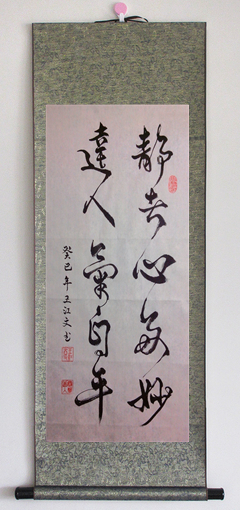 静者心多妙
達人氣自平
癸巳年王江文书